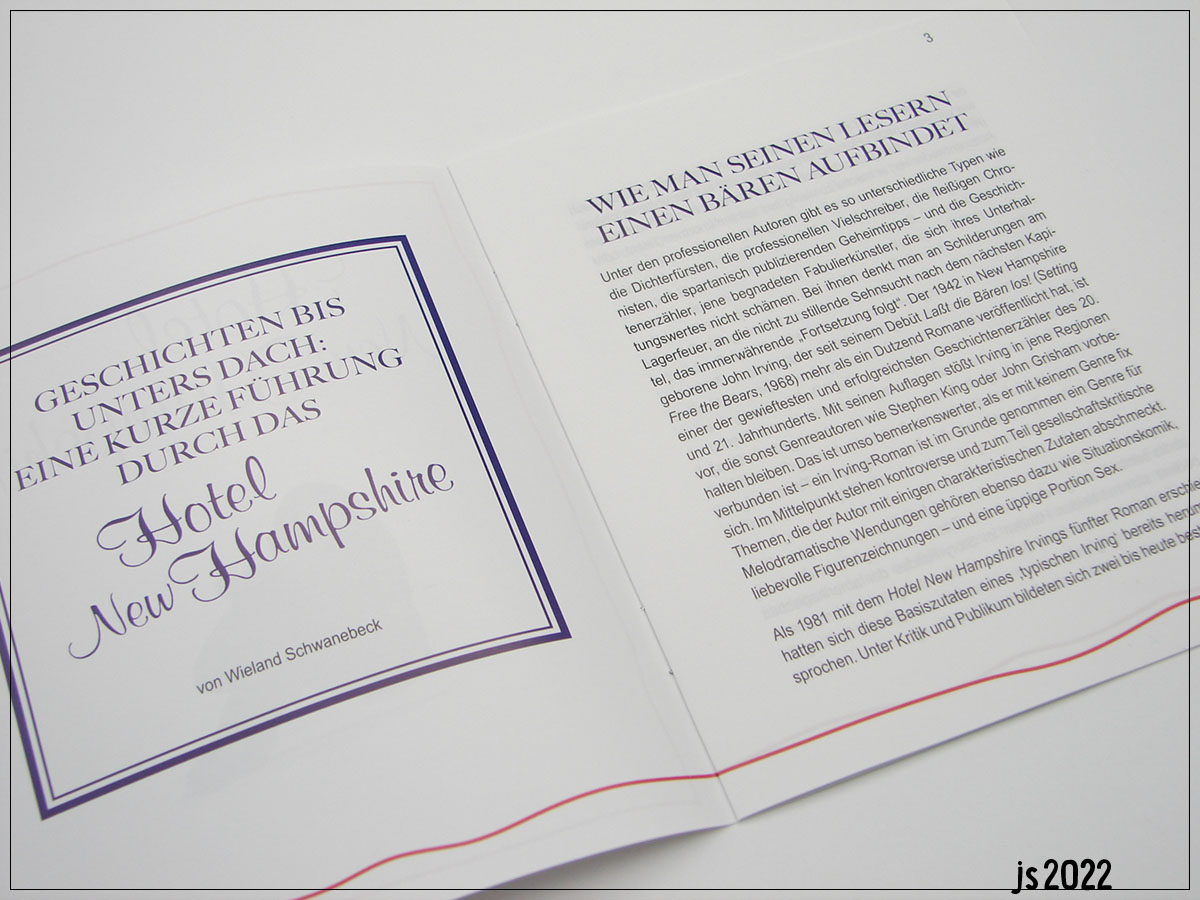 GESCHICHTEN BIS
UNTERS DACH:
EINE KURZE FÜHRUNG
DURCH DAS
Hotel
New Hampshire
von Wieland Schwanebeck
3
WIE MAN SEINEN LESERN
EINEN BÄREN AUFBINDET
Unter den professionellen Autoren gibt es so unterschiedliche Typen wie
die Dichterfürsten, die professionellen Vielschreiber, die fleißigen Chro-
nisten, die spartanisch publizierenden Geheimtipps – und die Geschich-
tenerzähler, jene begnadeten Fabulierkünstler, die sich ihres Unterhal-
tungswertes nicht schämen. Bei ihnen denkt man an Schilderungen am
Lagerfeuer, an die nicht zu stillende Sehnsucht nach dem nächsten Kapi-
tel, das immerwährende „Fortsetzung folgt“. Der 1942 in New Hampshire
geborene John Irving, der seit seinem Debüt Laßt die Bären los! (Setting
Free the Bears, 1968) mehr als ein Dutzend Romane veröffentlicht hat, ist
einer der gewieftesten und erfolgreichsten Geschichtenerzähler des 20.
und 21. Jahrhunderts. Mit seinen Auflagen stößt Irving in jene Regionen
vor, die sonst Genreautoren wie Stephen King oder John Grisham vorbe-
halten bleiben. Das ist umso bemerkenswerter, als er mit keinem Genre fix
verbunden ist – ein Irving-Roman ist im Grunde genommen ein Genre für
sich. Im Mittelpunkt stehen kontroverse und zum Teil gesellschaftskritische
Themen, die der Autor mit einigen charakteristischen Zutaten abschmeckt.
Melodramatische Wendungen gehören ebenso dazu wie Situationskomik,
liebevolle Figurenzeichnungen – und eine üppige Portion Sex.
Als 1981 mit dem Hotel New Hampshire Irvings fünfter Roman erschie
hatten sich diese Basiszutaten eines ‚typischen Irving‘ bereits herum
sprochen. Unter Kritik und Publikum bildeten sich zwei bis heute best
js 2022